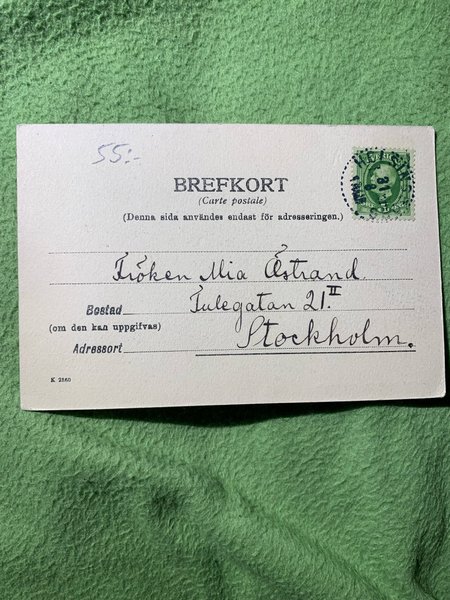 55:-
BREFKORT
(Carte postale)
(Denna sida användes endast för adresseringen.)
Fröken Mia Åstrand.
Bostad Tulegatan 21.II
(om den kan uppgifvas)
Stockholm.
Adressort
K 2860
31